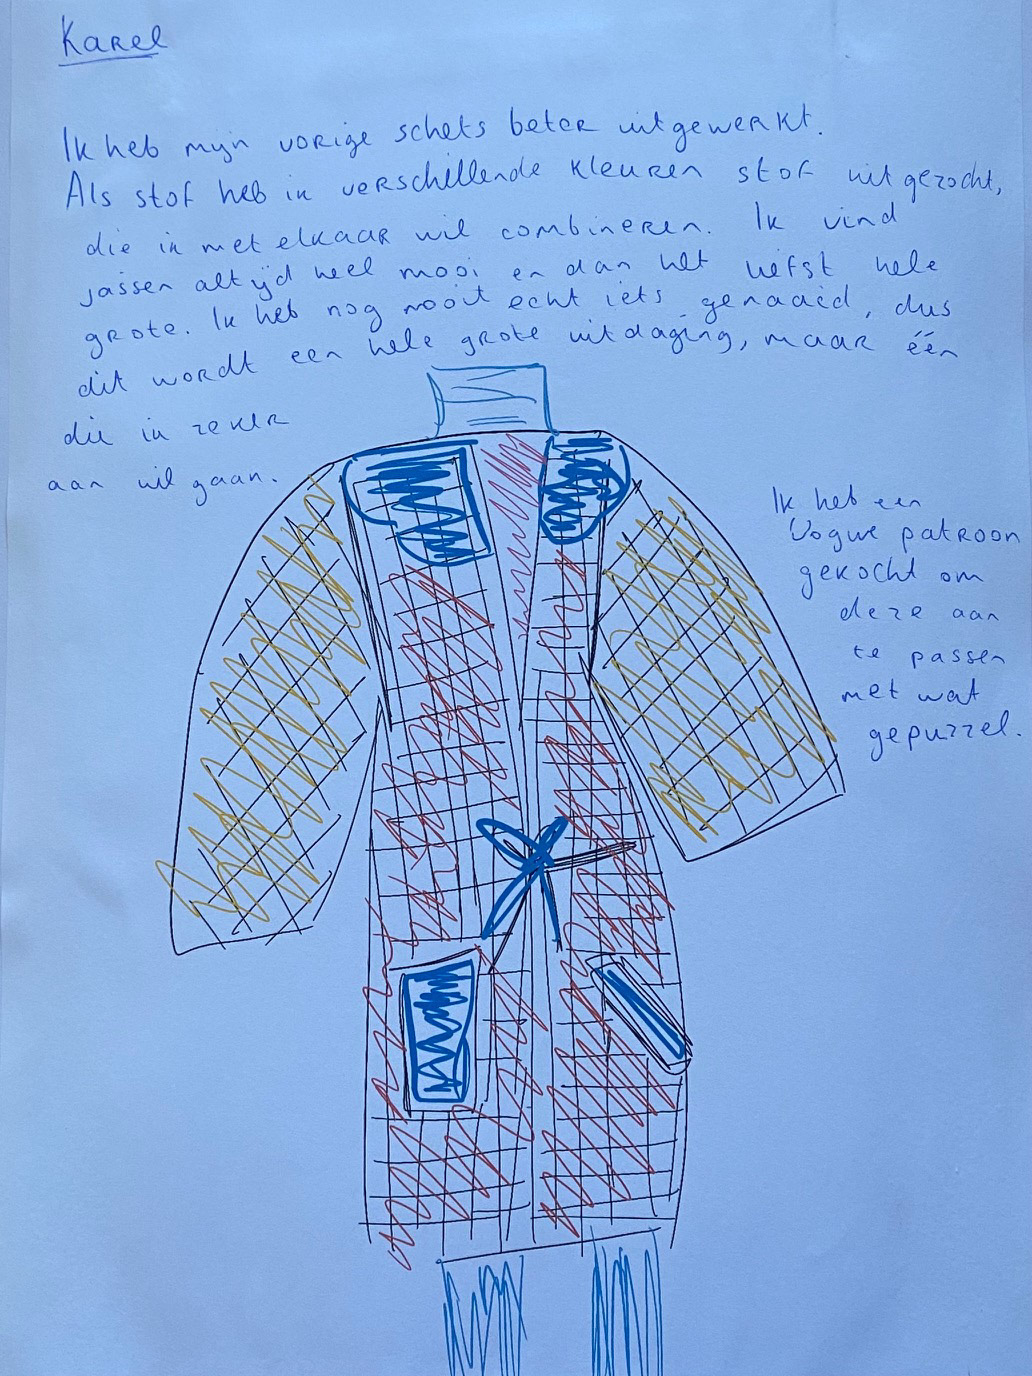 Karel
Ik heb mijn vorige schets beter uitgewerkt.
Als stof heb ik verschillende kleuren stof uitgezocht,
die ik met elkaar wil combineren. Ik vind
jassen altijd heel mooi en dan het liefst hele
grote. Ik heb nog nooit echt iets genaaid, dus
dit wordt een hele grote uitdaging, maar één
die ik zeker
aan wil gaan.
Ik heb een
Vogue patroon
gekocht om
deze aan
te passen
met wat
gepuzzel.